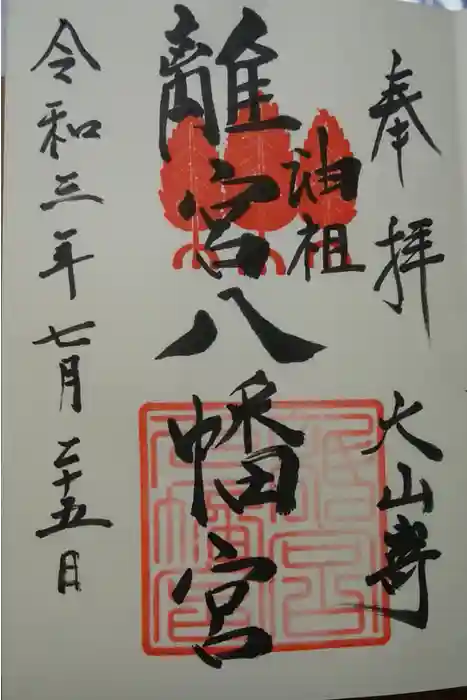 奉拝 大山崎
油祖
離宮八幡宮
令和三年七月二十五日
離宮八幡宮